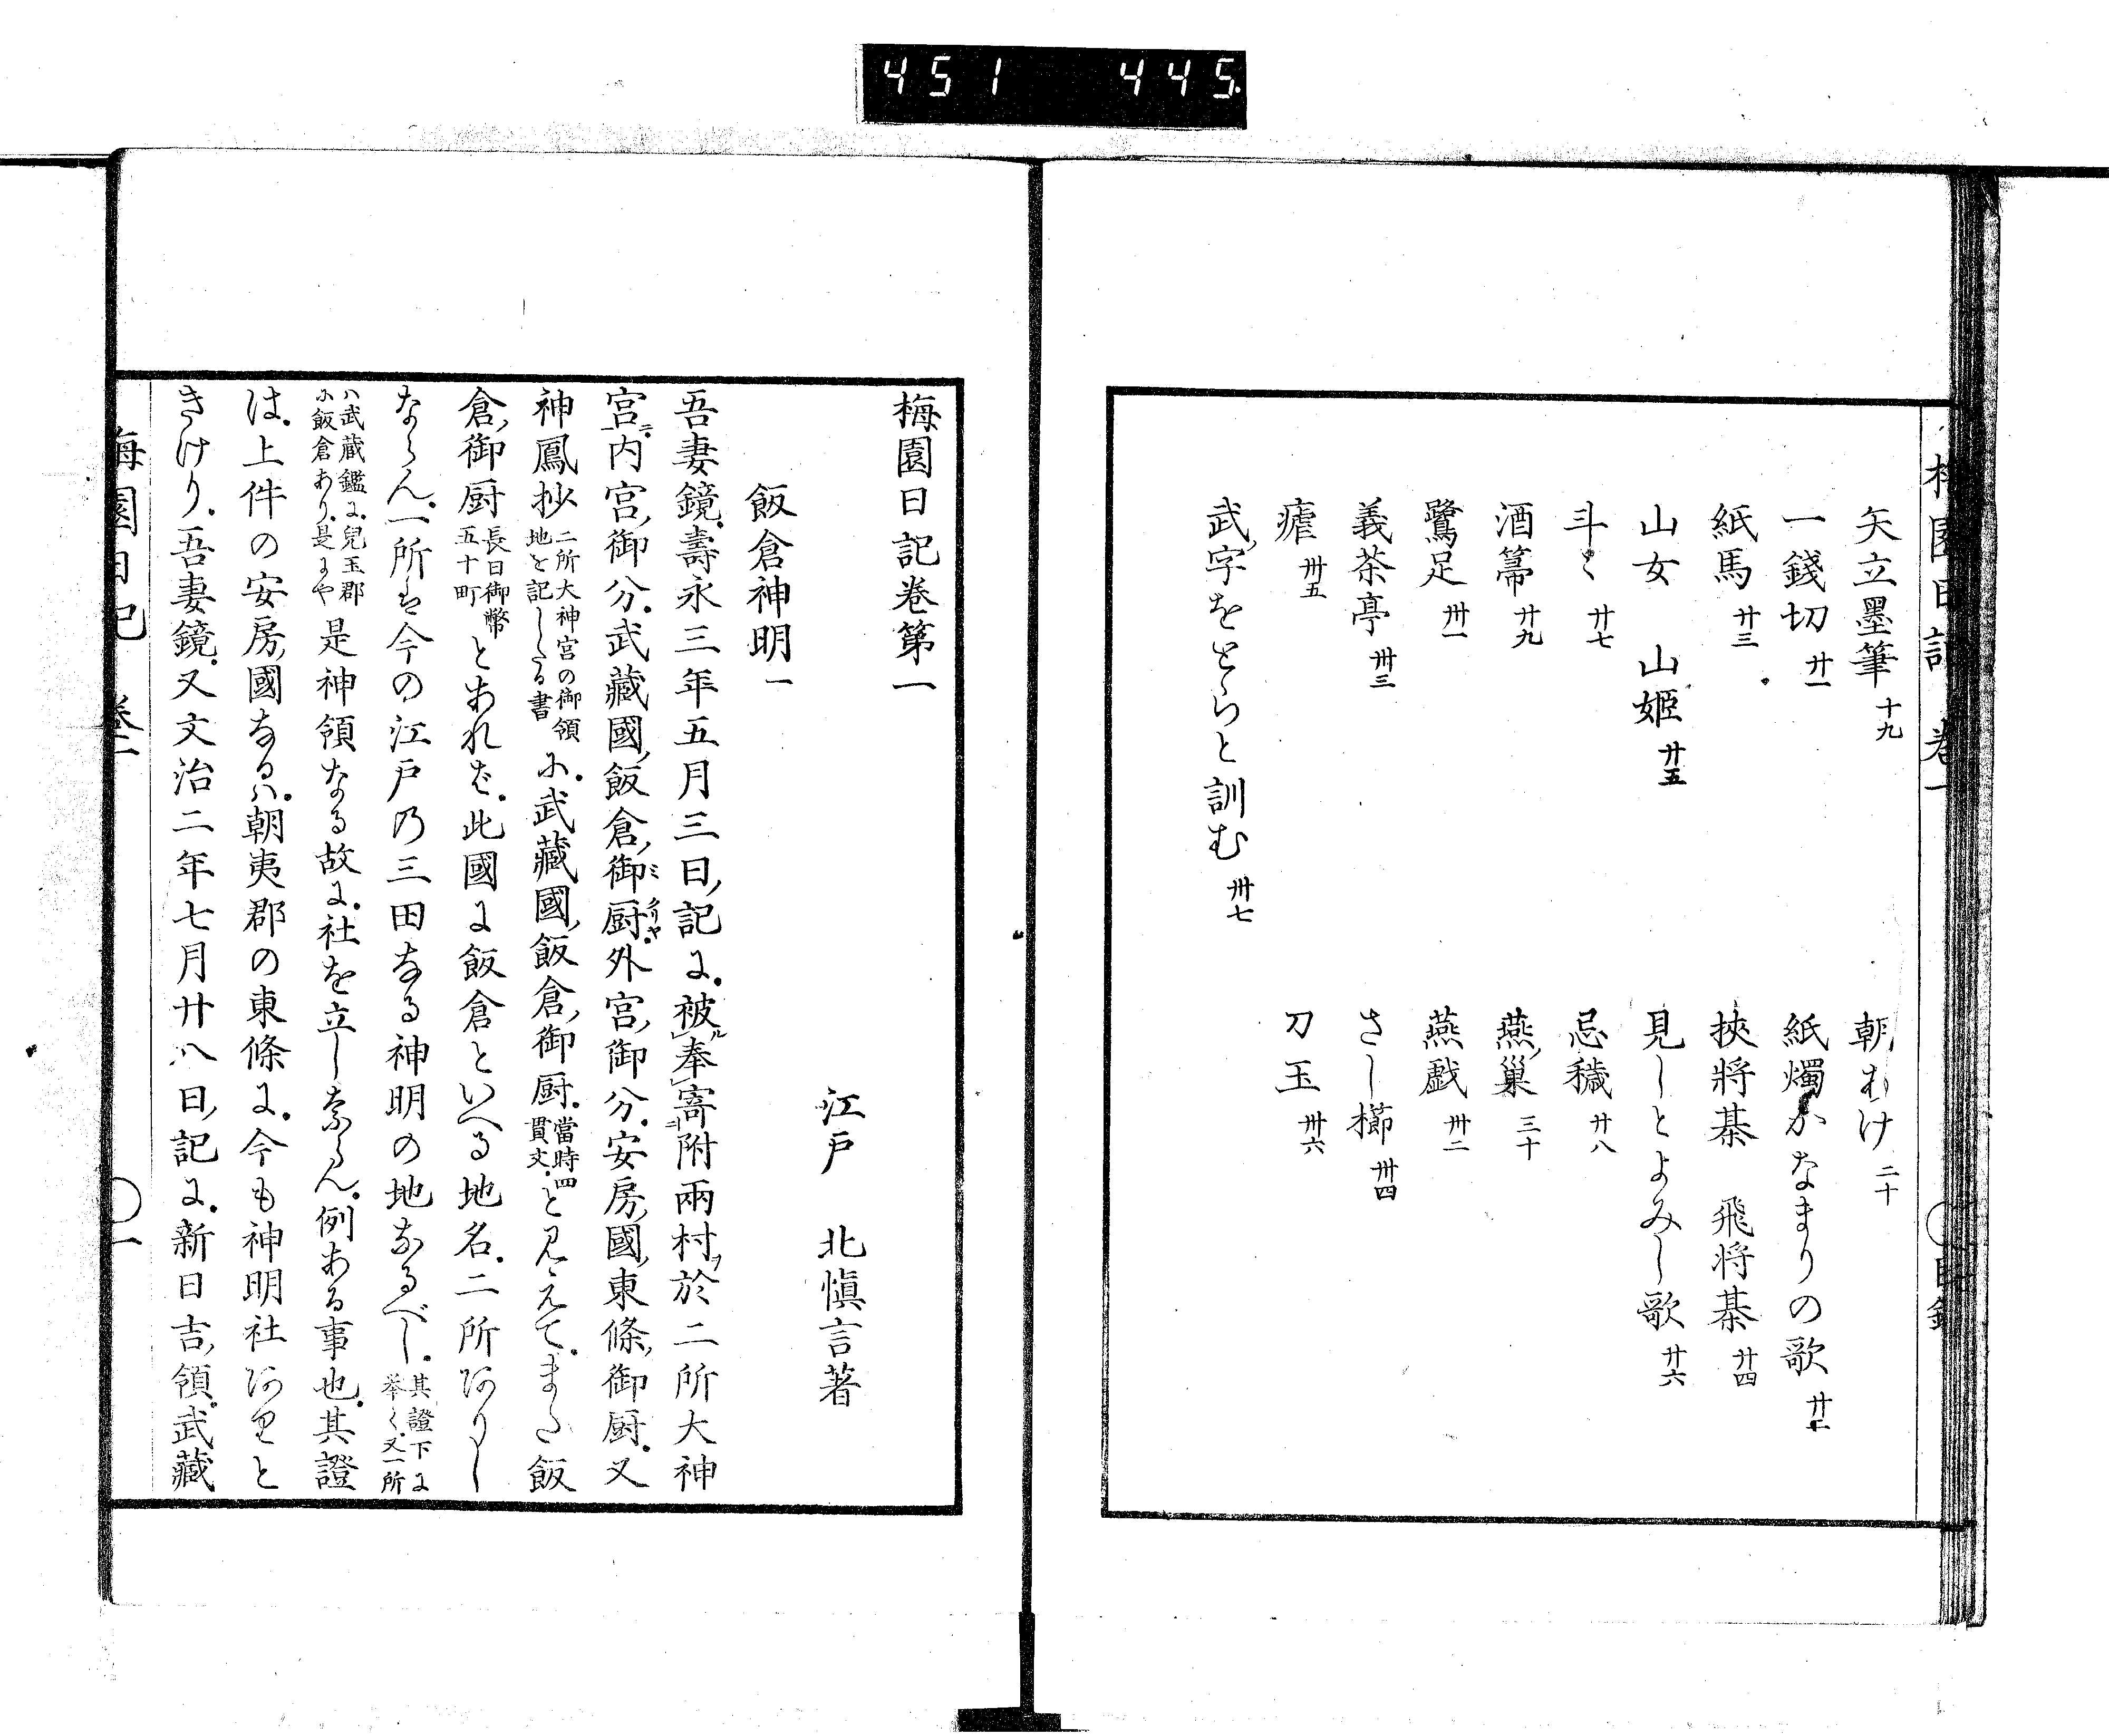 451 445
梅園日記 卷一 ○目録
矢立墨筆 十九
朝むけ 二十
一錢切 廿一
紙燭かなまりの歌
紙馬 廿三
挾將棊 飛將棊 廿四
山女 山姬 廿五
見しとよみし歌 廿六
斗々 廿七
忌穢 廿八
酒箒 廿九
燕巢 三十
鷺足 卅一
燕戯 卅二
義茶亭 卅三
さし櫛 卅四
瘧 卅五
刀玉 卅六
武字をとらと訓む 卅七
梅園日記卷第一
江戸 北愼言著
飯倉神明一
吾妻鏡壽永三年五月三日記に被奉寄附兩村於二所大神
宮内宮御分武藏國飯倉御厨外宮御分安房國東條御厨又
神鳳抄二所大神宮の御領地を記したる書に武藏國飯倉御厨當時四貫文と見えてまた飯
倉御厨長日御幣五十町とあれば此國に飯倉といへる地名二所ありし
ならん一所は今の江戸乃三田なる神明の地なるべし其證下に擧く又一所
ハ武藏鑑に兒玉郡に飯倉あり是にや是神領なる故に社を立しならん例ある事也其證
は上件の安房國なるハ朝夷郡の東條に今も神明社ありと
きけり吾妻鏡又文治二年七月廿八日記に新日吉領武藏
梅園日記 卷一 ○一